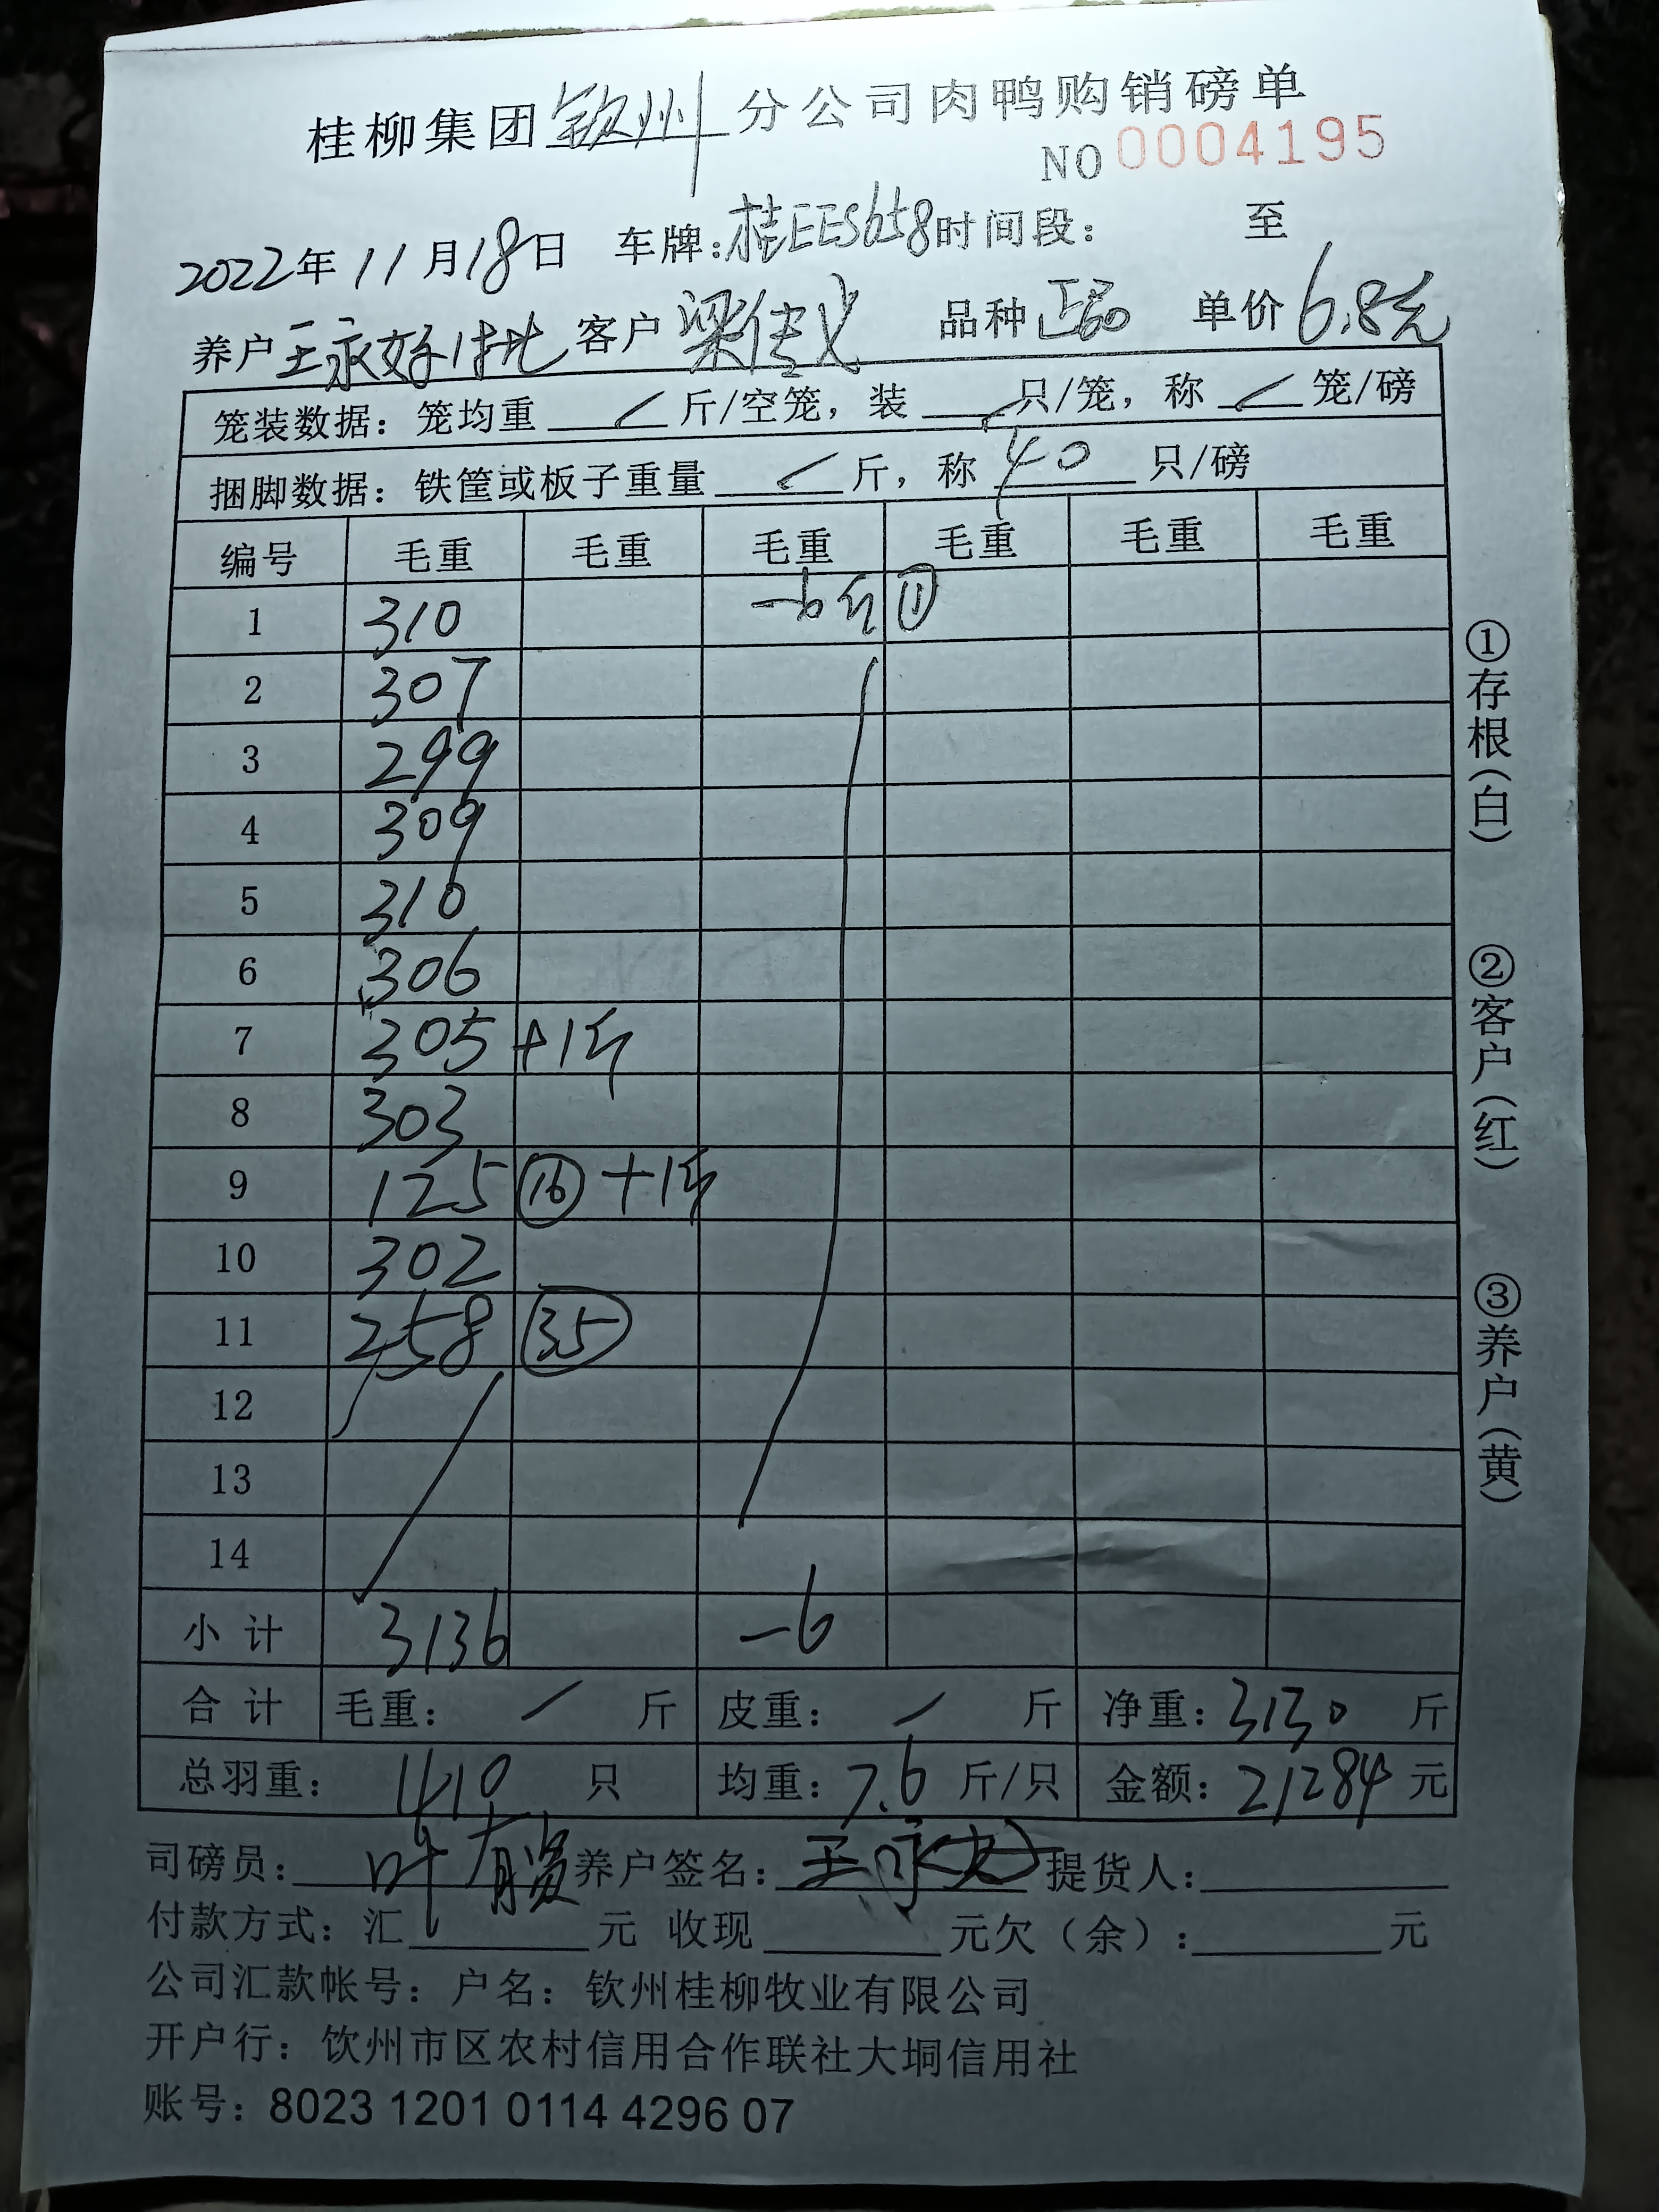 桂柳集团钦州分公司肉鸭购销磅单
NO 0004195
2022年11月18日 车牌:桂EES658时间段: 至
养户王永好1批 客户梁 品种正品 单价6.8元
笼装数据:笼均重 / 斤/空笼,装 / 只/笼,称 / 笼/磅
捆脚数据:铁筐或板子重量 / 斤,称 40 只/磅
编号 毛重 毛重 毛重 毛重 毛重 毛重
1 310 -6斤 ①
2 307
3 299
4 309
5 310
6 306
7 305 +1斤
8 303
9 125 ⑯ +1斤
10 302
11 258 ㉟
12
13
14
小计 3136 -6
合计 毛重: / 斤 皮重: / 斤 净重:3130 斤
总羽重: 410 只 均重:7.6 斤/只 金额:21284 元
司磅员:叶有 养户签名:王永好 提货人:
付款方式:汇 元 收现 元欠(余): 元
公司汇款帐号:户名:钦州桂柳牧业有限公司
开户行:钦州市区农村信用合作联社大垌信用社
账号:8023 1201 0114 4296 07
①存根(白)
②客户(红)
③养户(黄)